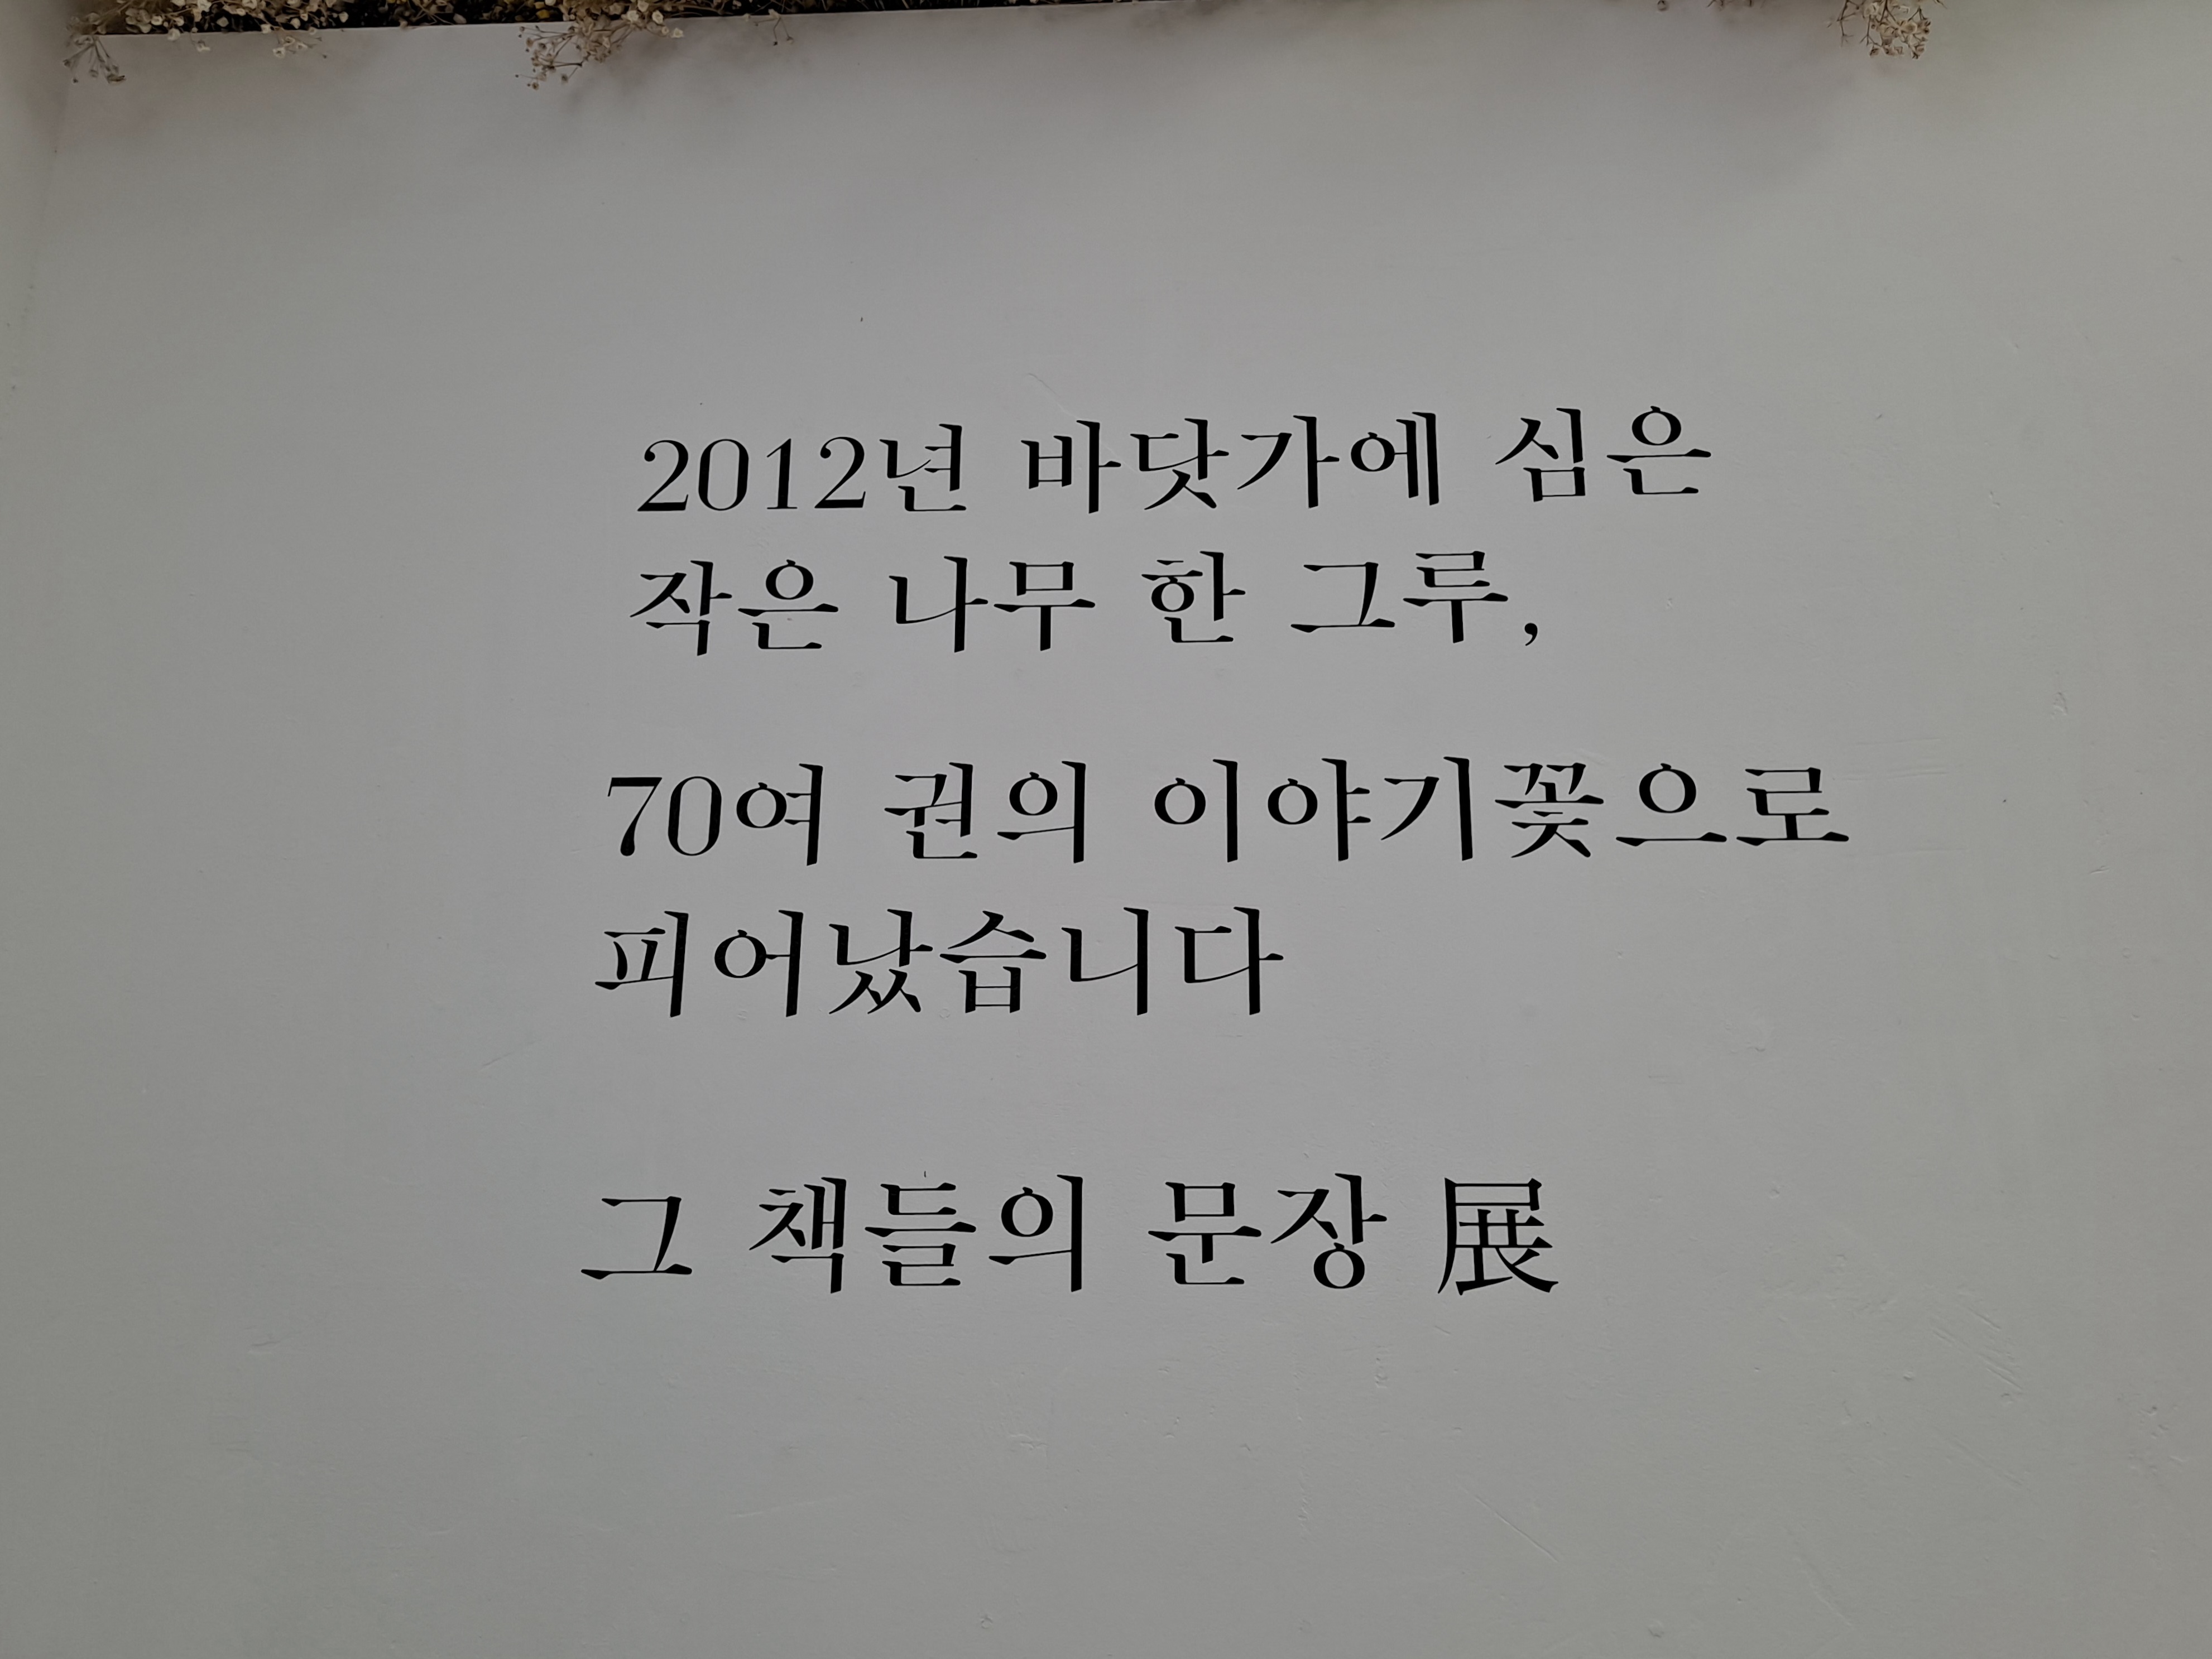 2012년 바닷가에 심은
작은 나무 한 그루,
70여 권의 이야기꽃으로
피어났습니다
그 책들의 문장 展